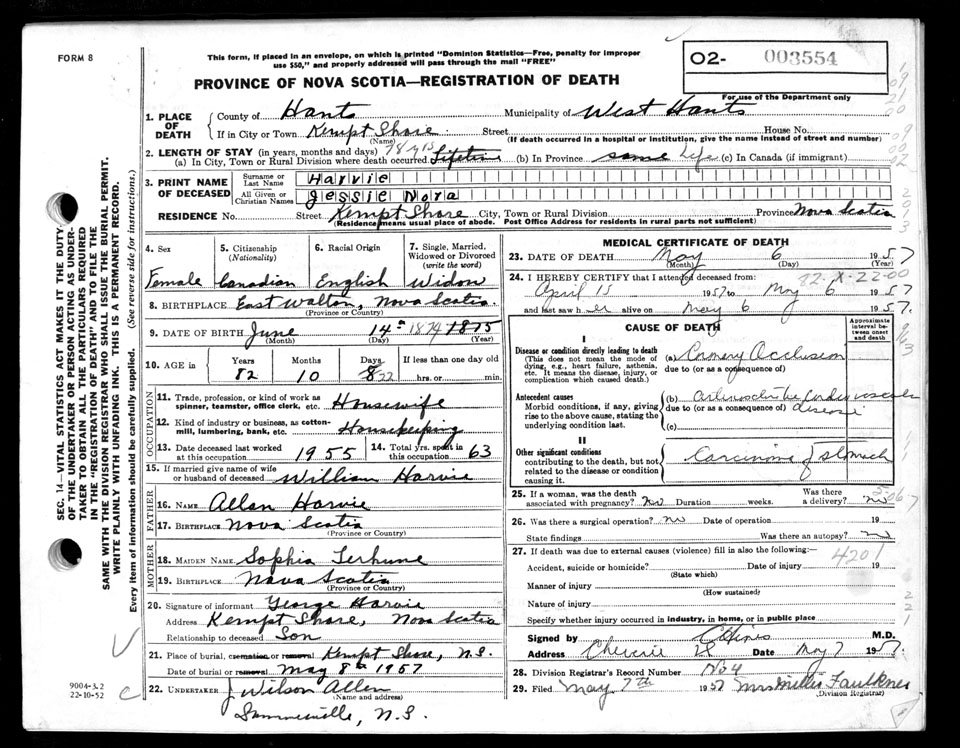 FORM 8
This form, if placed in an envelope, on which is printed "Dominion Statistics—Free, penalty for improper
use $50," and properly addressed will pass through the mail "FREE"
PROVINCE OF NOVA SCOTIA—REGISTRATION OF DEATH
O2- 003554
For use of the Department only
1. PLACE OF DEATH
County of Hants Municipality of West Hants
If in City or Town Kempt Shore Street House No.
(Name) (If death occurred in a hospital or institution, give the name instead of street and number)
2. LENGTH OF STAY (in years, months and days) 78 yrs
(a) In City, Town or Rural Division where death occurred Lifetime (b) In Province same Life (c) In Canada (if immigrant)
3. PRINT NAME OF DECEASED
Surname or Last Name Harvie
All Given or Christian Names Jessie Nora
RESIDENCE No. Street Kempt Shore City, Town or Rural Division Province Nova Scotia
(Residence means usual place of abode. Post Office Address for residents in rural parts not sufficient)
4. Sex 5. Citizenship (Nationality) 6. Racial Origin 7. Single, Married, Widowed or Divorced (write the word)
Female Canadian English Widow
8. BIRTHPLACE East Walton, Nova Scotia.
(Province or Country)
9. DATE OF BIRTH June 14 1874 1875
(Month) (Day) (Year)
10. AGE Years Months Days If less than one day old
82 10 22 hrs. or min.
OCCUPATION
11. Trade, profession, or kind of work as spinner, teamster, office clerk, etc. Housewife
12. Kind of industry or business, as cotton-mill, lumbering, bank, etc. Housekeeping
13. Date deceased last worked at this occupation 1955 14. Total yrs. spent in this occupation 63
15. If married give name of wife or husband of deceased William Harvie
FATHER
16. NAME Allan Harvie
17. BIRTHPLACE Nova Scotia
(Province or Country)
MOTHER
18. MAIDEN NAME Sophia Terhune
19. BIRTHPLACE Nova Scotia
(Province or Country)
20. Signature of informant George Harvie
Address Kempt Shore, Nova Scotia
Relationship to deceased Son
21. Place of burial, cremation or removal Kempt Shore, N.S.
Date of burial or removal May 8th 1957
22. UNDERTAKER J Wilson Allen
(Name and address)
Summerville, N.S.
MEDICAL CERTIFICATE OF DEATH
23. DATE OF DEATH May 6 1957
(Month) (Day) (Year)
24. I HEREBY CERTIFY that I attended deceased from:
12-X-22-00
April 15 1957 to May 6 1957
and last saw her alive on May 6 1957.
CAUSE OF DEATH
Approximate interval between onset and death
I
Disease or condition directly leading to death
(This does not mean the mode of dying, e.g., heart failure, asthenia, etc. It means the disease, injury, or complication which caused death.)
(a) Coronary Occlusion
due to (or as a consequence of)
Antecedent causes
Morbid conditions, if any, giving rise to the above cause, stating the underlying condition last.
(b) Arteriosclerotic Cardiovascular disease
due to (or as a consequence of)
(c)
II
Other significant conditions
contributing to the death, but not related to the disease or condition causing it.
Carcinoma of stomach
25. If a woman, was the death associated with pregnancy? no Duration weeks. Was there a delivery? no
26. Was there a surgical operation? no Date of operation 19
State findings Was there an autopsy? no
27. If death was due to external causes (violence) fill in also the following:
4201
Accident, suicide or homicide? Date of injury 19
(State which)
Manner of injury
(How sustained)
Nature of injury
Specify whether injury occurred in industry, in home, or in public place
Signed by C Hines M.D.
Address Cheverie NS Date May 7 1957
28. Division Registrar's Record Number No 4
29. Filed May 7th 1957 Mrs Millie Faulkner
(Division Registrar)
SEC. 14—VITAL STATISTICS ACT MAKES IT THE DUTY
OF THE UNDERTAKER OR PERSON ACTING AS UNDER-
TAKER TO OBTAIN ALL THE PARTICULARS REQUIRED
IN THE "REGISTRATION OF DEATH" AND TO FILE THE
SAME WITH THE DIVISION REGISTRAR WHO SHALL ISSUE THE BURIAL PERMIT.
WRITE PLAINLY WITH UNFADING INK. THIS IS A PERMANENT RECORD.
Every item of information should be carefully supplied. (See reverse side for instructions.)
9004-3.2
22-10-52